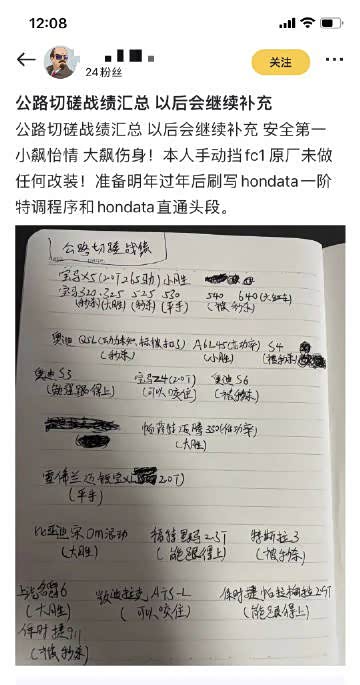 12:08
24粉丝
关注
公路切磋战绩汇总 以后会继续补充
公路切磋战绩汇总 以后会继续补充 安全第一
小飙怡情 大飙伤身！本人手动挡fc1原厂未做
任何改装！准备明年过年后刷写hondata一阶
特调程序和hondata直通头段。
公路切磋战绩
宝马X5(2.0T 265马力) 小胜
宝马320、325 525 530 540 640
(秒杀)(大胜) (秒杀) (平手) (被秒杀)
奥迪Q5L A6L45(高功率) S4
(秒杀) (小胜) (被秒杀)
奥迪S3 宝马Z4(2.0T) 奥迪S6
(勉强跟得上) (可以咬住) (被秒杀)
帕萨特 迈腾350(低功率)
(大胜)
雪佛兰迈锐宝XL 2.0T)
(平手)
比亚迪宋Dm混动 特斯拉3
(大胜) (能跟得上) (被秒杀)
6 凯迪拉克ATS-L 保时捷帕拉梅拉2.9T
(大胜) (可以咬住) (能跟得上)
保时捷911
(被秒杀)